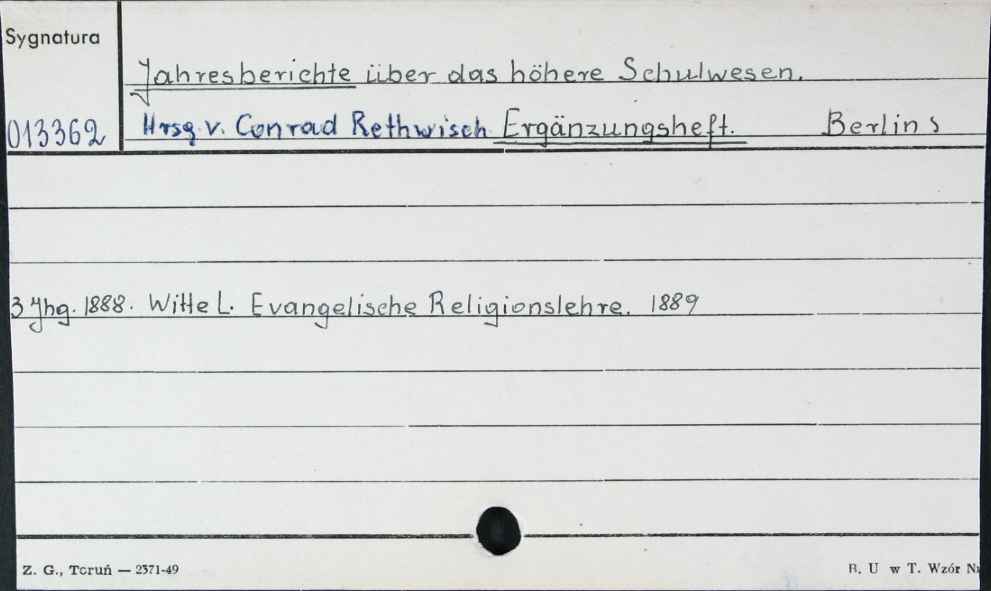 Sygnatura
Jahresberichte über das höhere Schulwesen.
013362 Hrsg v. Conrad Rethwisch Ergänzungsheft. Berlin s
3 Jhg. 1888. Witte L. Evangelische Religionslehre. 1889
Z. G., Toruń — 2371-49
B. U w T. Wzór Nr